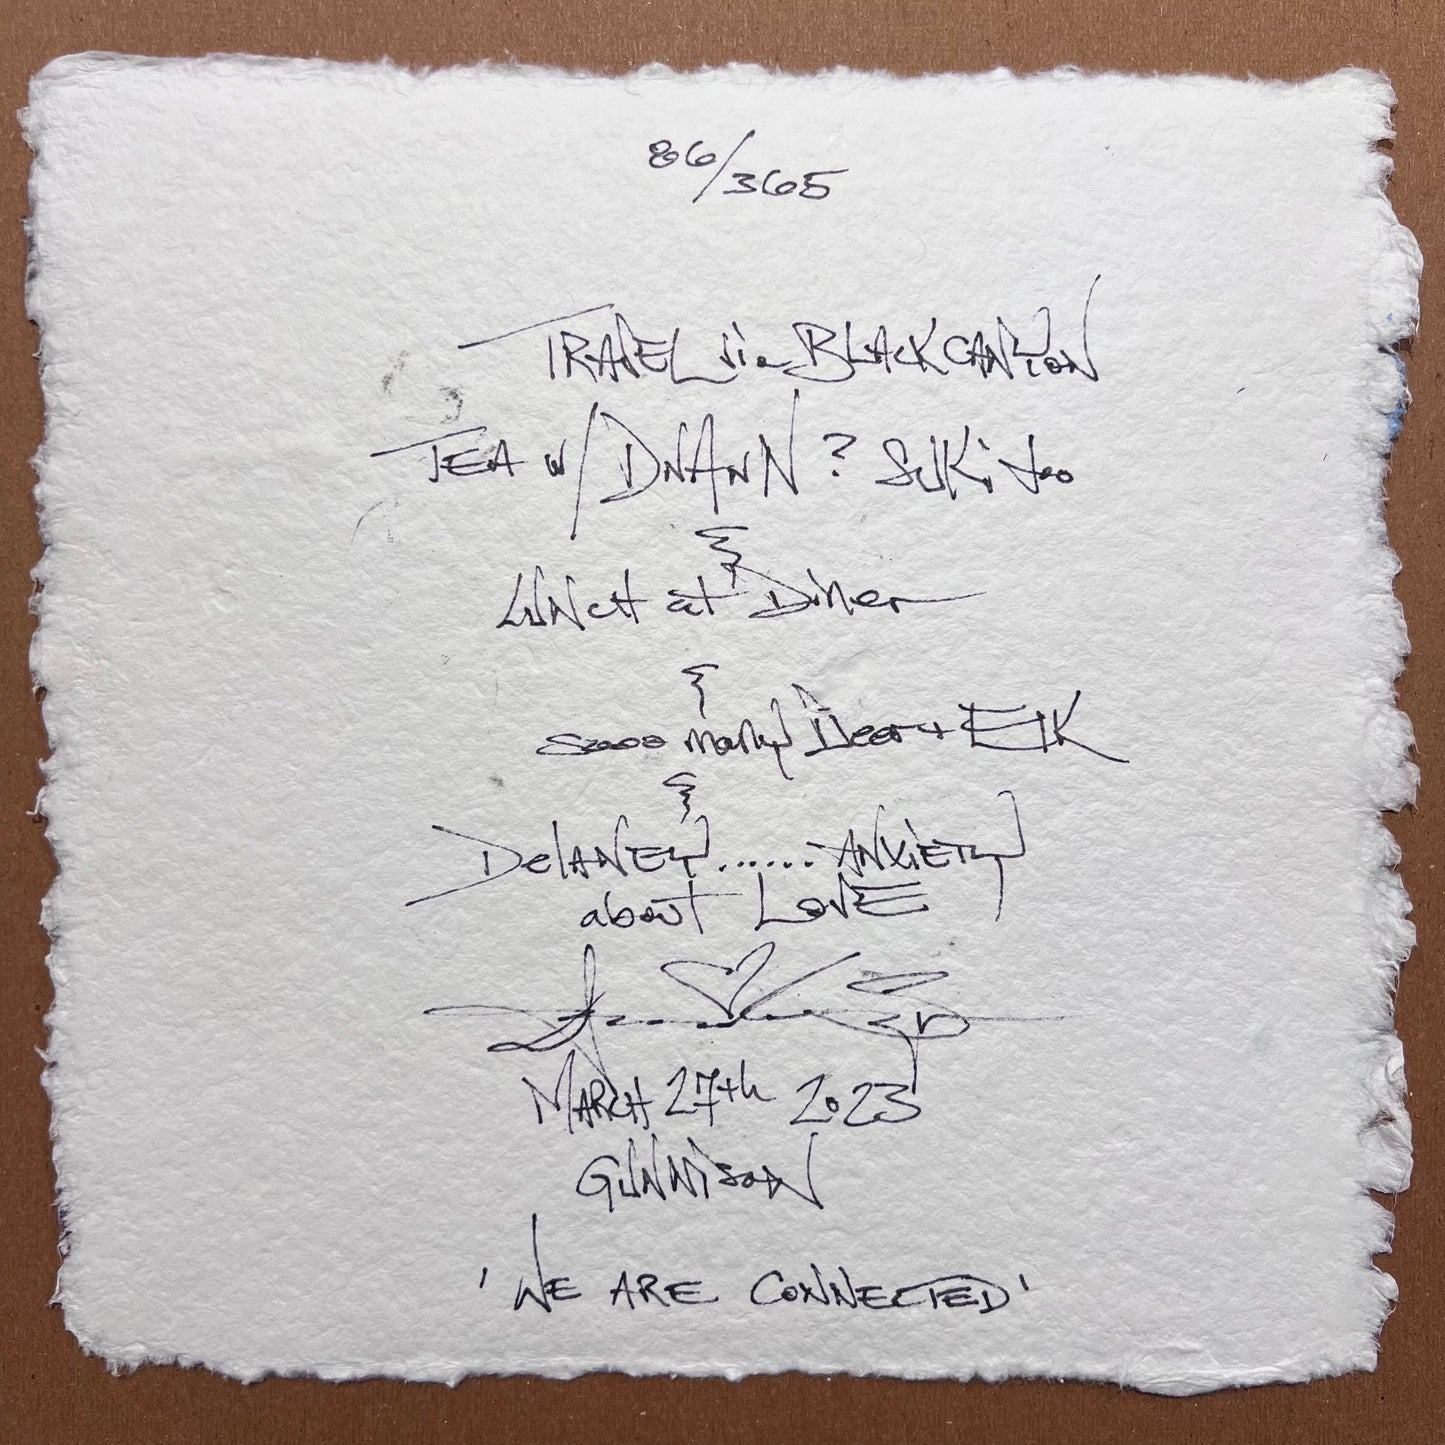 86/365
TRAVEL via BLACK CANYON
TEA w/ DNANN ? SUKi too
{
LUNCH at Diner
{
soooo many Deer + ElK
{
DelANEY ...... ANXiETY
about LOVE
MARCH 27th 2023
GUNNiSON
' WE ARE CONNECTED '